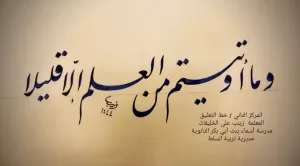 وما أوتيتم من العلم إلا قليلا
١٤٤٤
المركز الثاني / خط التعليق
المعلمة زينب علي الخليفات
مدرسة أسماء بنت أبي بكر الثانوية
مديرية تربية السلط